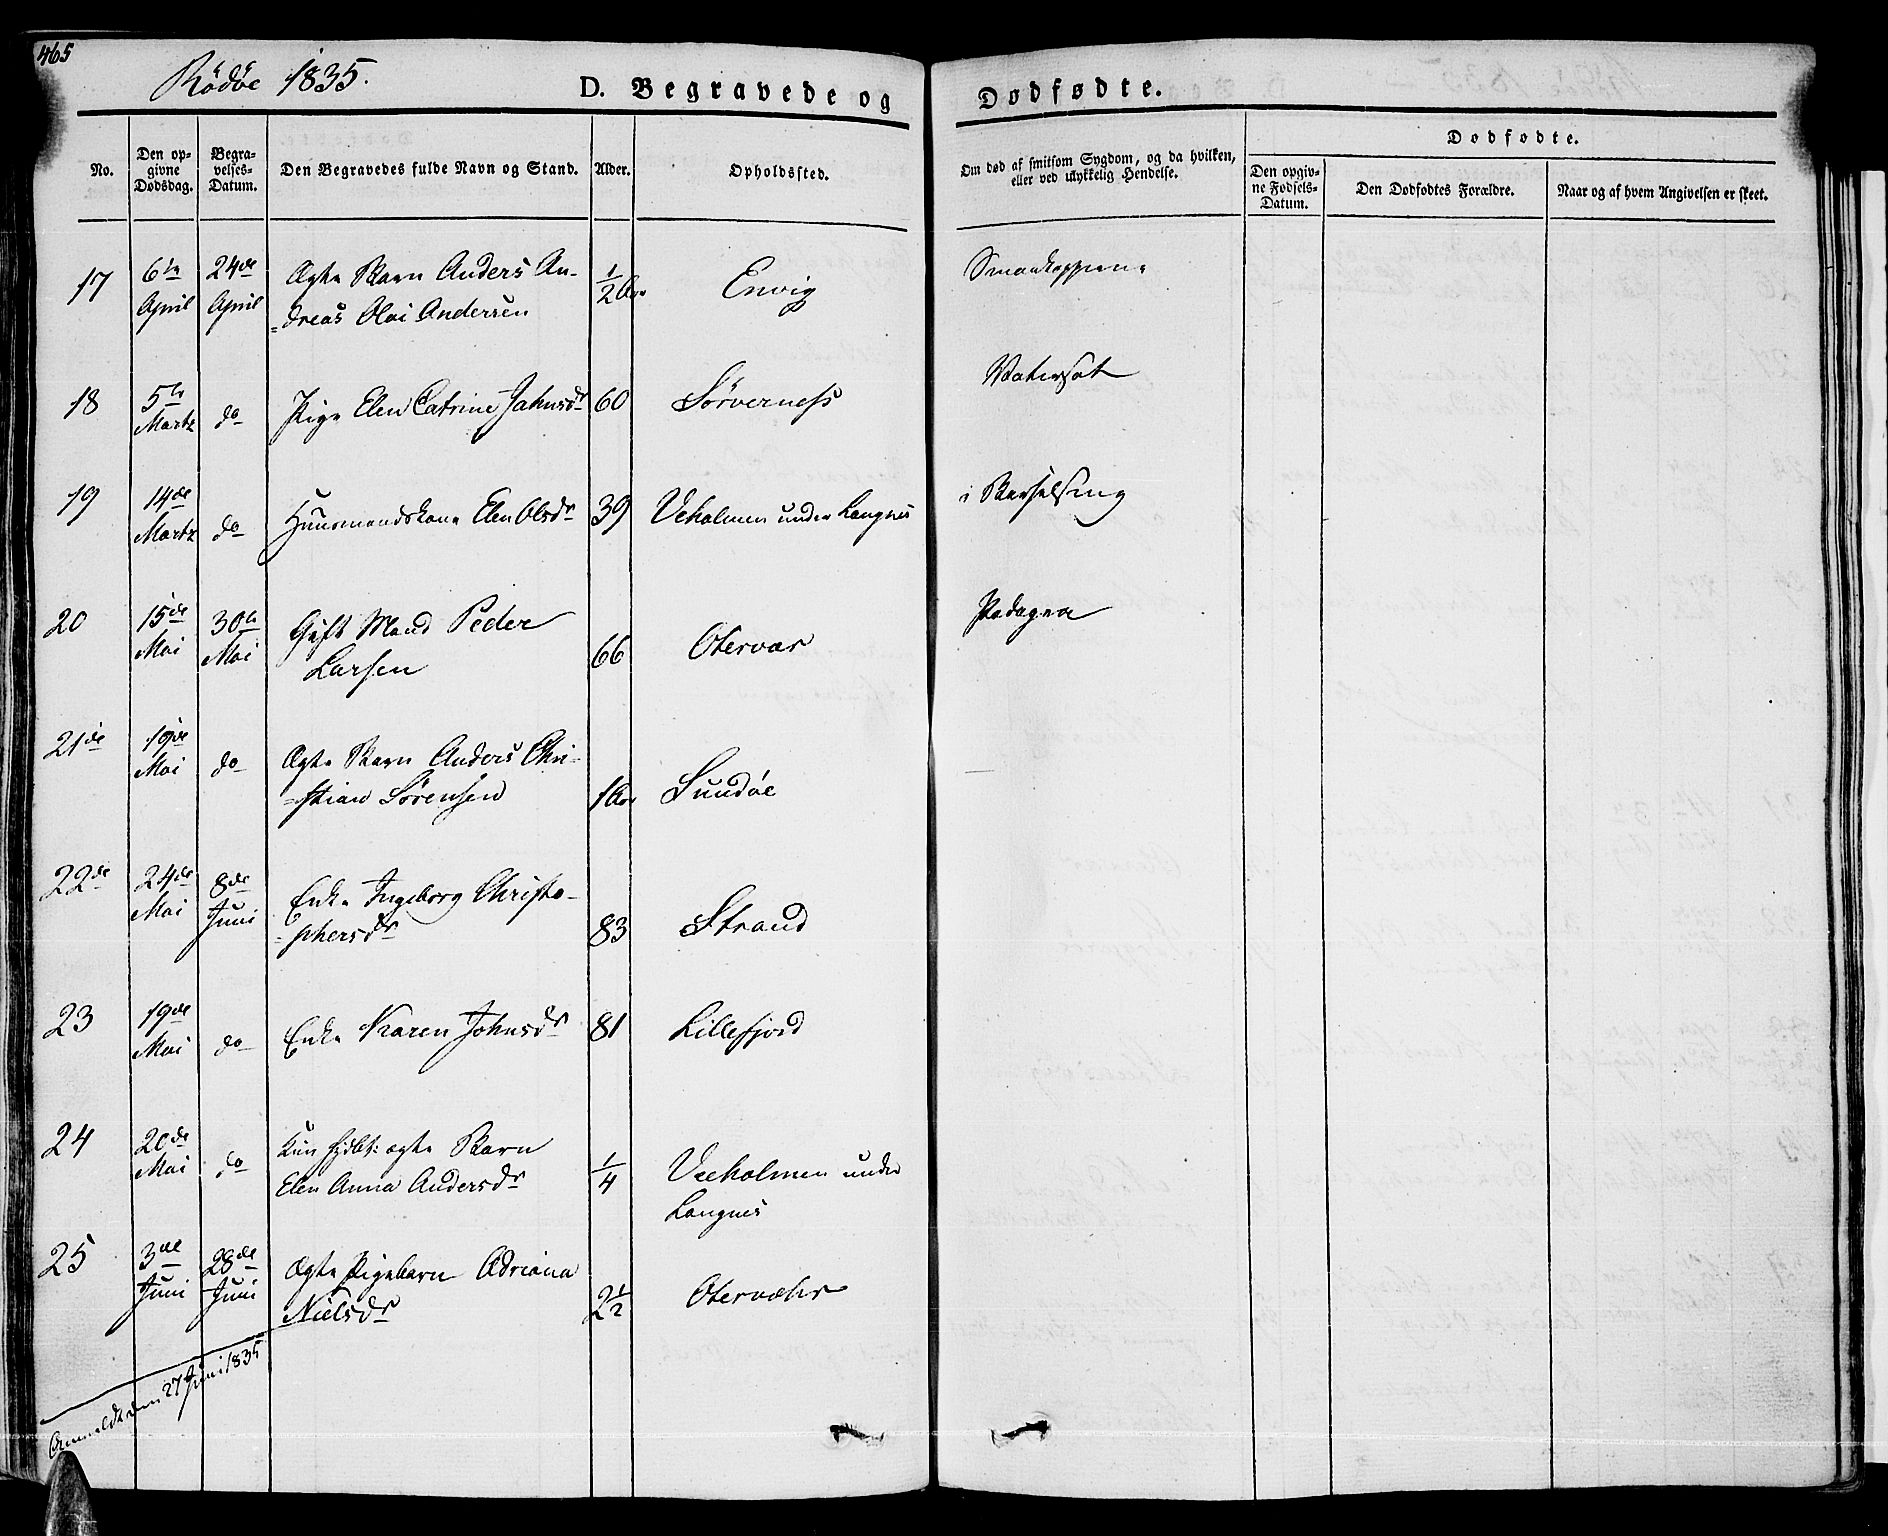 465
Rödöe 1835.
D. Begravede og Dødfødte.
No.
Den op-
givne
Dødsdag.
Begra-
velses-
Datum.
Den Begravedes fulde Navn og Stand.
Alder.
Opholdssted.
Om død af smitsom Sygdom, og da hvilken,
eller ved ulykkelig Hendelse.
Dødfødte.
Den opgiv-
ne Fødsels-
Datum.
Den Dødfødtes Forældre.
Naar og af hvem Angivelsen er skeet.
17
6te
April
24de
April
Ægte Barn Anders An-
=dreas Olai Andersen
1/2 Aar
Envig
Smaakopperne
18
5te
Martz
do
Pige Elen Catrine Jahnsdr
60
Sørverness
Vatersot
19
14de
Martz
do
Huusmandskone Elen Olsdr
39
Veholmen under Langnes
i Barselseng
20
15de
Mai
30te
Mai
Gift Mand Peder
Larsen
66
Otervær
Podagra
21de
19de
Mai
do
Ægte Barn Anders Chri-
=stian Sørensen
1 Aar
Sundöe
22de
24de
Mai
8de
Juni
Enke Ingeborg Christo-
=phersdr
83
Strand
23
19de
Mai
do
Enke Karen Johnsdr
81
Lillefjord
24
20de
Mai
do
Kun hjdbt: ægte Barn
Elen Anna Andersdr
1/4
Veeholmen under
Langnes
25
3de
Juni
28de
Juni
Ægte Pigebarn Adriana
Nielsdr
2 1/2
Oterværs
Anmeldt den 27 Juni 1835